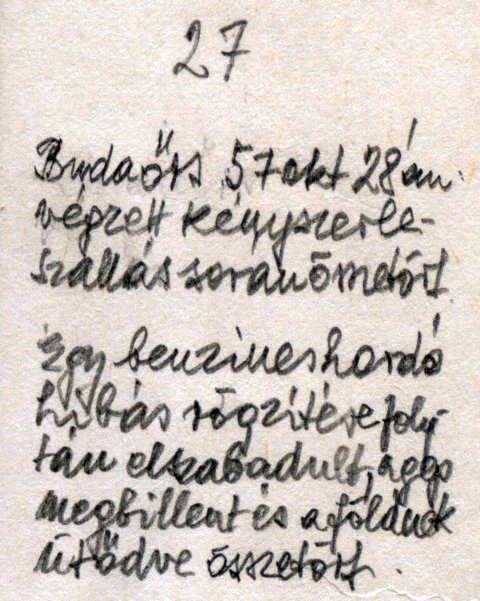 27
Budaőrs 57 okt 28án
végzett kényszerle-
szállás során
Egy benzineshordó
hibás rögzítése foly-
tán elszabadult, a gép
megbillent és a földnek
ütődve összetört.